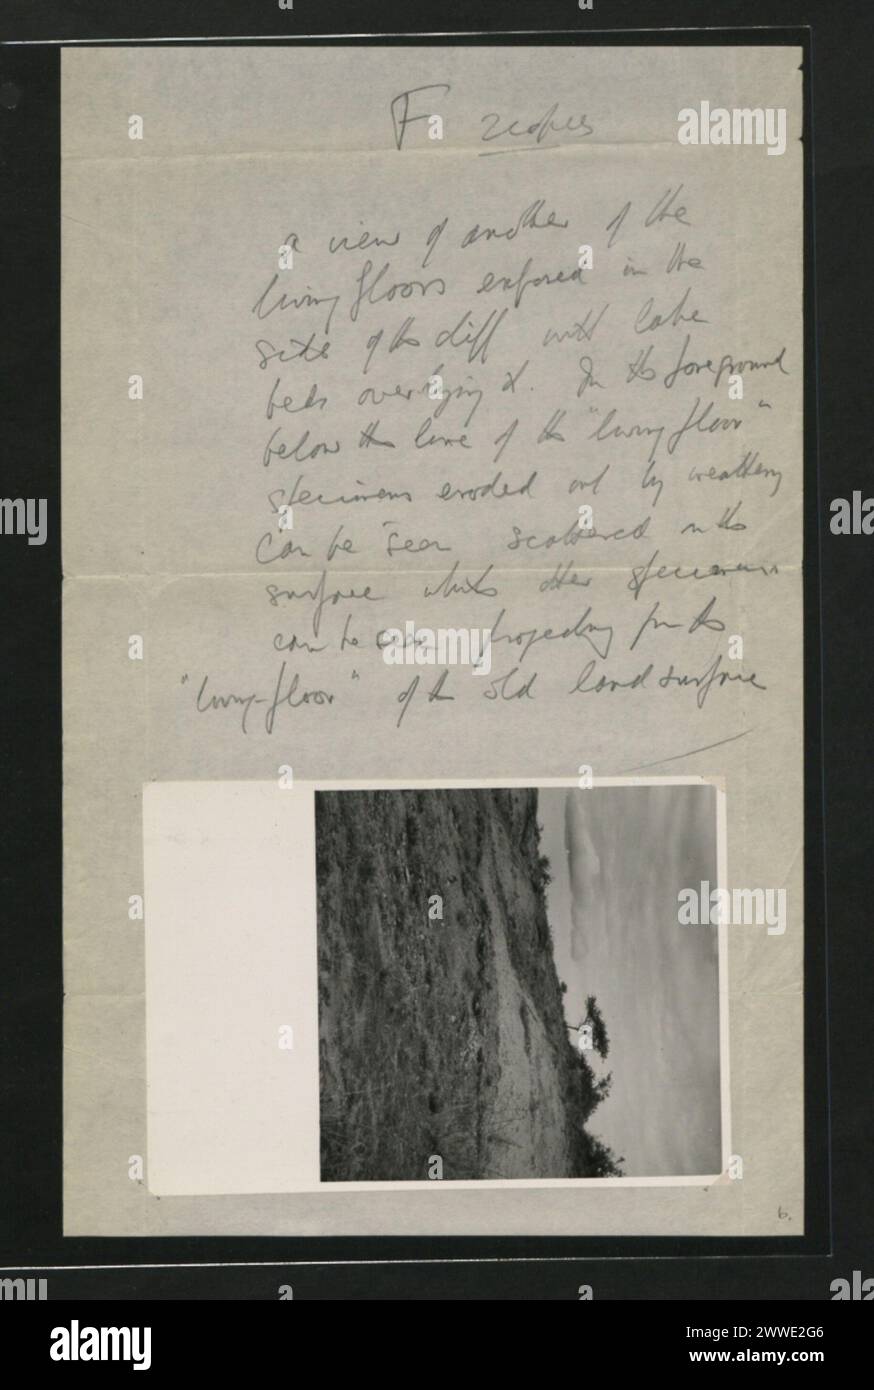 F 2 copies
a view of another of the
living floors exposed in the
side of the cliff with lake
beds overlying it. In the foreground
below the line of the "living floor"
specimens eroded out by weathering
can be seen scattered on the
surface whilst other specimens
can be seen projecting from the
"living-floor" of the old land surface
6.
a
alamy
alamy
Image ID: 2WWE2G6
www.alamy.com